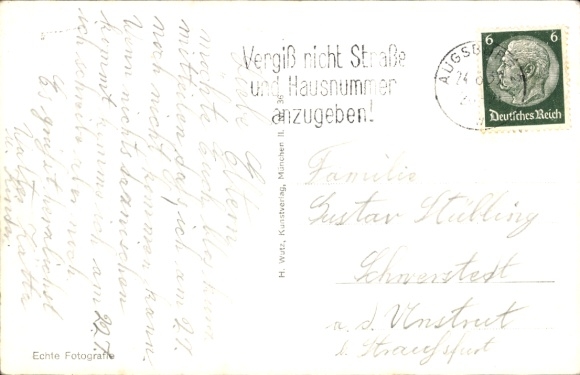 Vergiß nicht Straße
und Hausnummer
anzugeben!
AUGSBURG
6 6
Deutsches Reich
Liebe Eltern
möchte Euch bloß kurz
mitteilen daß ich am 24.
noch nicht kommen kann
wenn nichts dazwischen
kommt komme ich am 29.7.
ich schreibe aber noch
Es grüßt herzlichst
Walter
H. Wutz, Kunstverlag, München
Familie
Gustav Stübling
Schwerstedt
a. d. Unstrut
b. Straußfurt
Echte Fotografie